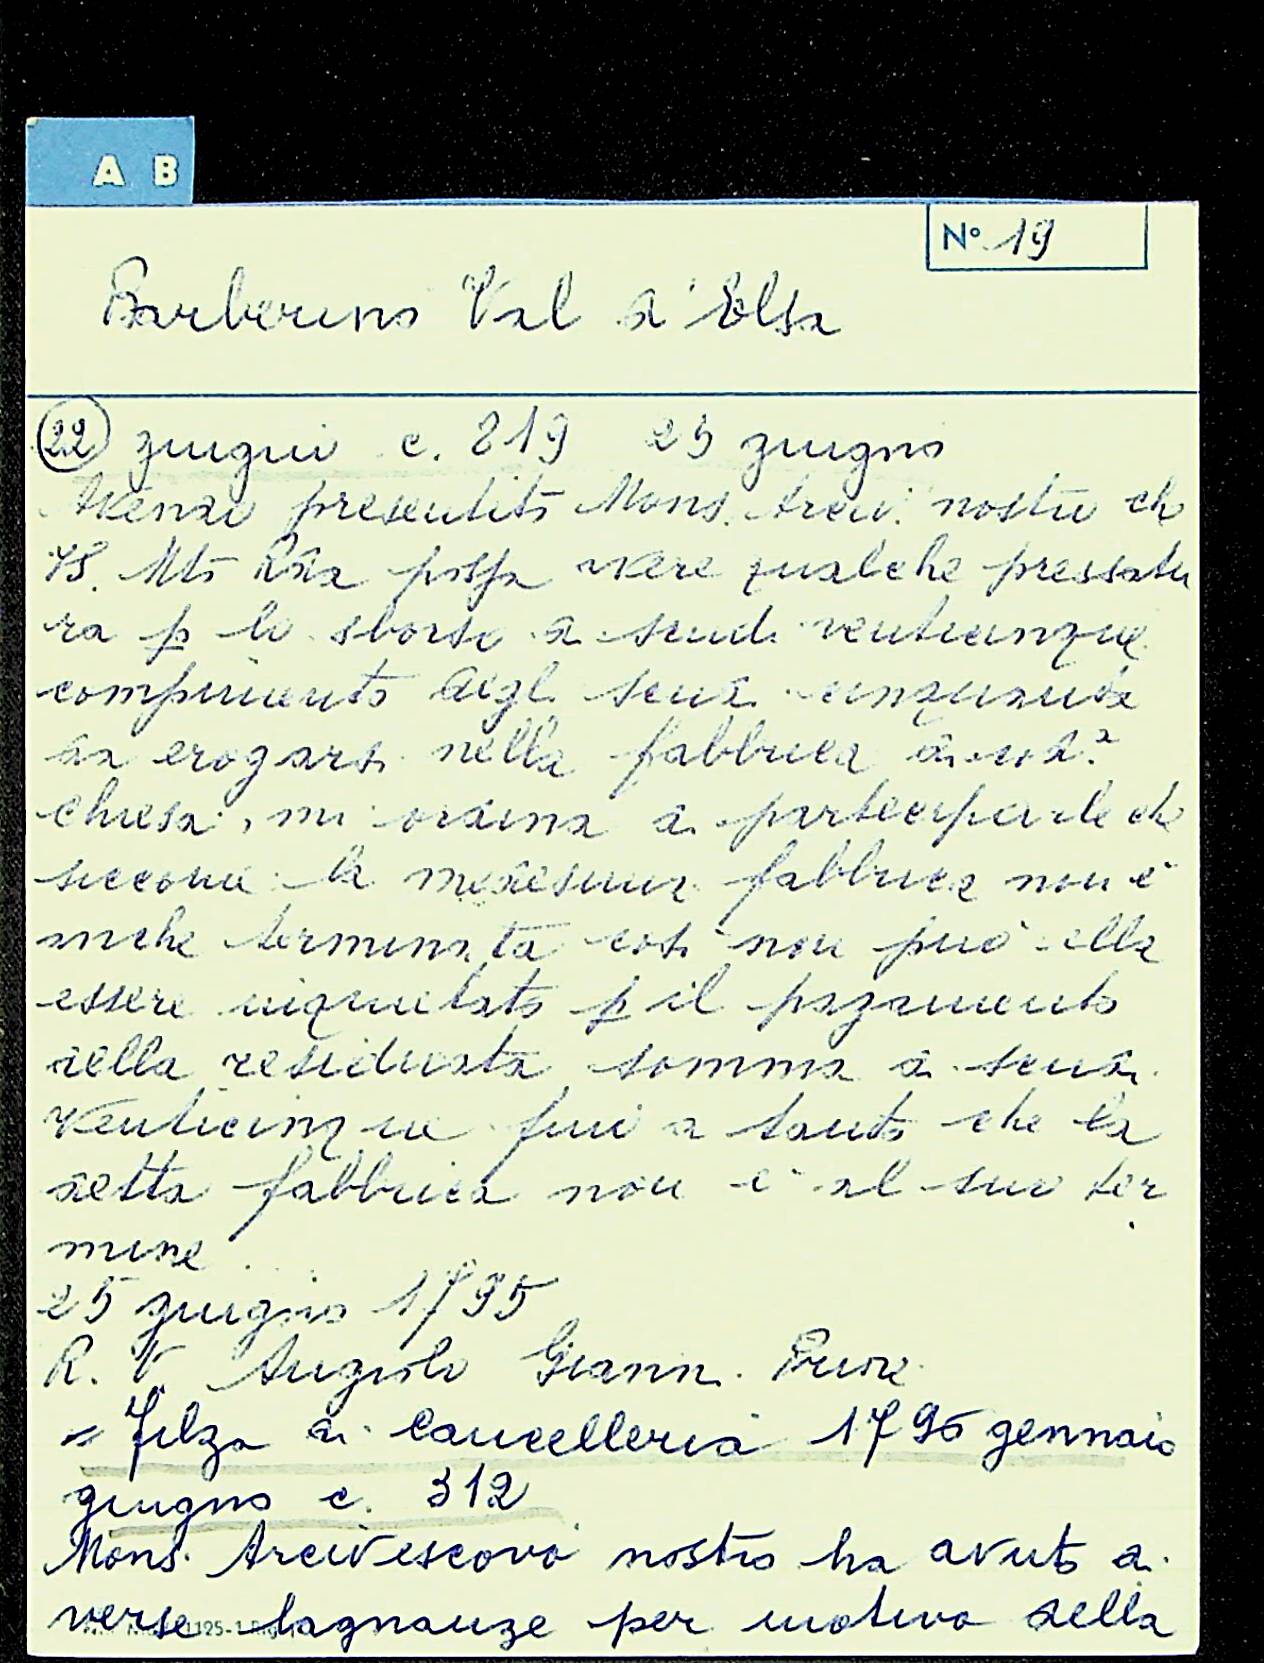 A B
N° 19
Barberino Val d'Elsa
22 giugno c. 819 25 giugno
Avendo presentito Mons. Arciv. nostro che
VS. Mto Rda possa avere qualche pressatu
ra p lo sborso di scudi venticinque
compimento degl. scudi cinquanta
da erogarsi nella fabbrica di cod.a
chiesa, mi ordina di parteciparle che
siccome la medesima fabbrica non è
anche terminata così non può ella
essere inquietato p il pagamento
della residuata somma di scudi
venticinque fino a tanto che la
detta fabbrica non è al suo ter
mine
25 giugno 1795
R. V. Angiolo Giann. Prior
= Filza di Cancelleria 1795 gennaio
giugno c. 312
Mons. Arcivescovo nostro ha avuto di
verse lagnanze per motivo della